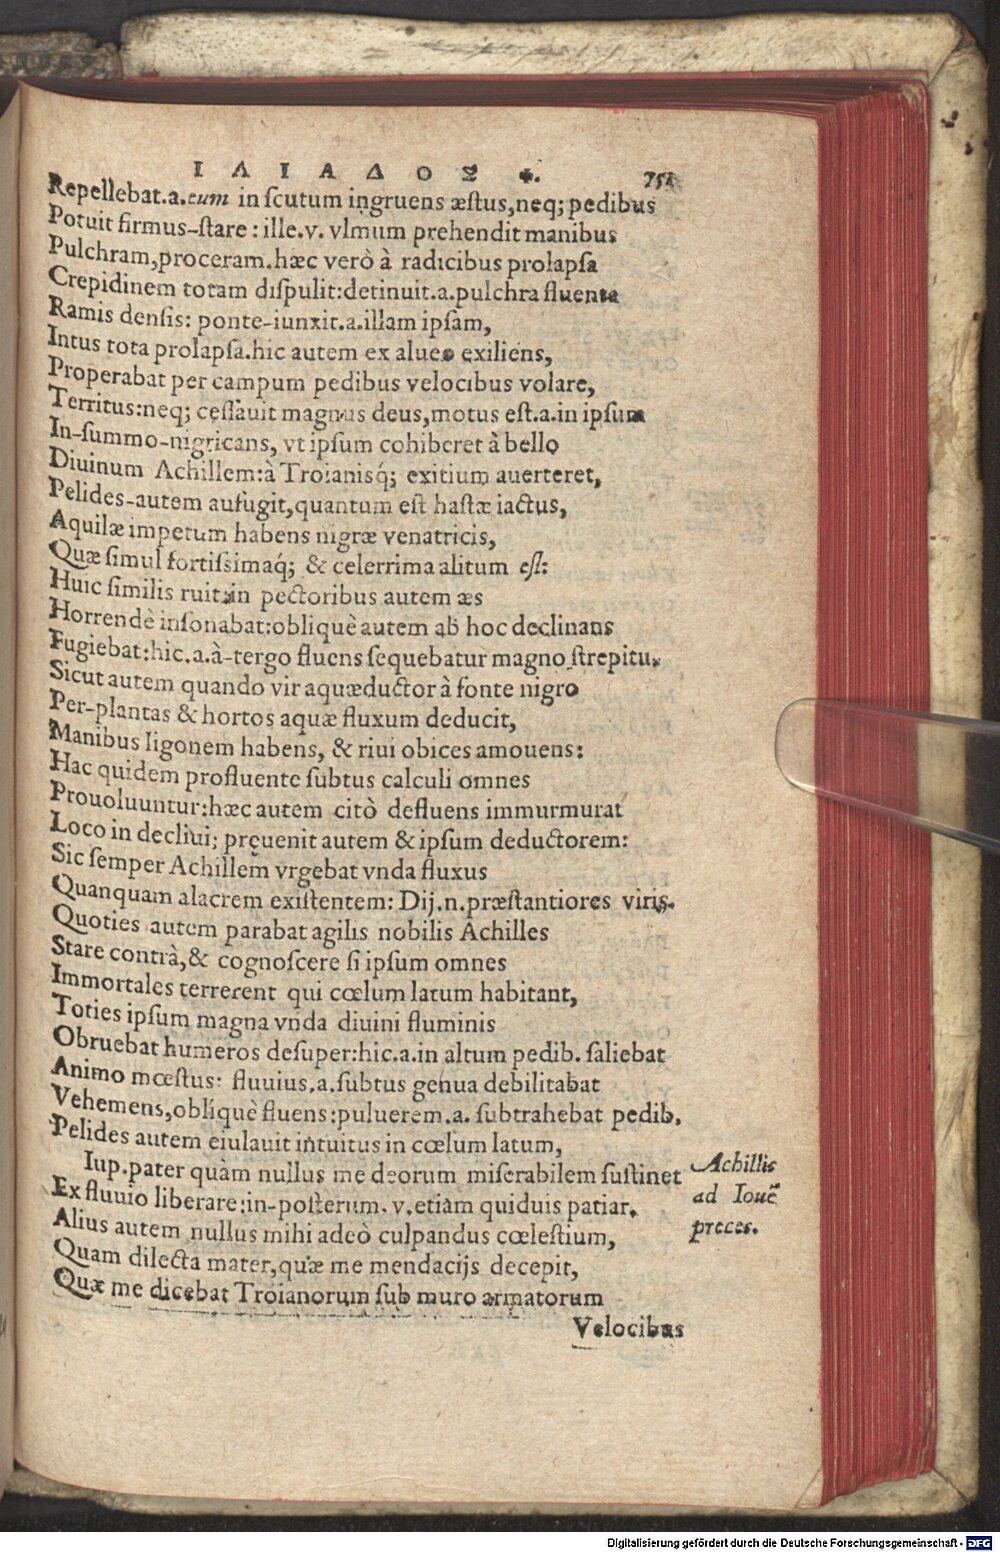 ΙΛΙΑΔΟΣ Φ. 751
Repellebat.a.eum in ſcutum ingruens æſtus,neq; pedibus
Potuit firmus-ſtare : ille.v. vlmum prehendit manibus
Pulchram,proceram.hæc verò à radicibus prolapſa
Crepidinem totam diſpulit:detinuit.a.pulchra fluenta
Ramis denſis: ponte-iunxit.a.illam ipſam,
Intus tota prolapſa.hic autem ex alueo exiliens,
Properabat per campum pedibus velocibus volare,
Territus:neq; ceſſauit magnus deus,motus eſt.a.in ipſum
In-ſummo-nigricans, vt ipſum cohiberet à bello
Diuinum Achillem:à Troianisq́; exitium auerteret,
Pelides-autem aufugit,quantum eſt haſtæ iactus,
Aquilæ impetum habens nigræ venatricis,
Quæ ſimul fortiſsimaq́; & celerrima alitum eſt:
Huic ſimilis ruit:in pectoribus autem æs
Horrendè inſonabat:obliquè autem ab hoc declinans
Fugiebat:hic.a.à-tergo fluens ſequebatur magno ſtrepitu.
Sicut autem quando vir aquæductor à fonte nigro
Per-plantas & hortos aquæ fluxum deducit,
Manibus ligonem habens, & riui obices amouens:
Hac quidem profluente ſubtus calculi omnes
Prouoluuntur:hæc autem citò defluens immurmurat
Loco in decliui; pręuenit autem & ipſum deductorem:
Sic ſemper Achillem vrgebat vnda fluxus
Quanquam alacrem exiſtentem: Dij.n.præſtantiores viris.
Quoties autem parabat agilis nobilis Achilles
Stare contrà,& cognoſcere ſi ipſum omnes
Immortales terrerent qui cœlum latum habitant,
Toties ipſum magna vnda diuini fluminis
Obruebat humeros deſuper:hic.a.in altum pedib. ſaliebat
Animo mœſtus: fluuius.a.ſubtus genua debilitabat
Vehemens,obliquè fluens:puluerem.a. ſubtrahebat pedib.
Pelides autem eiulauit intuitus in cœlum latum,
Iup.pater quàm nullus me deorum miſerabilem ſuſtinet
Ex fluuio liberare:in-poſterum.v.etiam quiduis patiar.
Alius autem nullus mihi adeò culpandus cœleſtium,
Quam dilecta mater,quæ me mendacijs decepit,
Quæ me dicebat Troianorum ſub muro armatorum
Velocibus
Achillis
ad Iouē
preces.
Digitalisierung gefördert durch die Deutsche Forschungsgemeinschaft - DFG